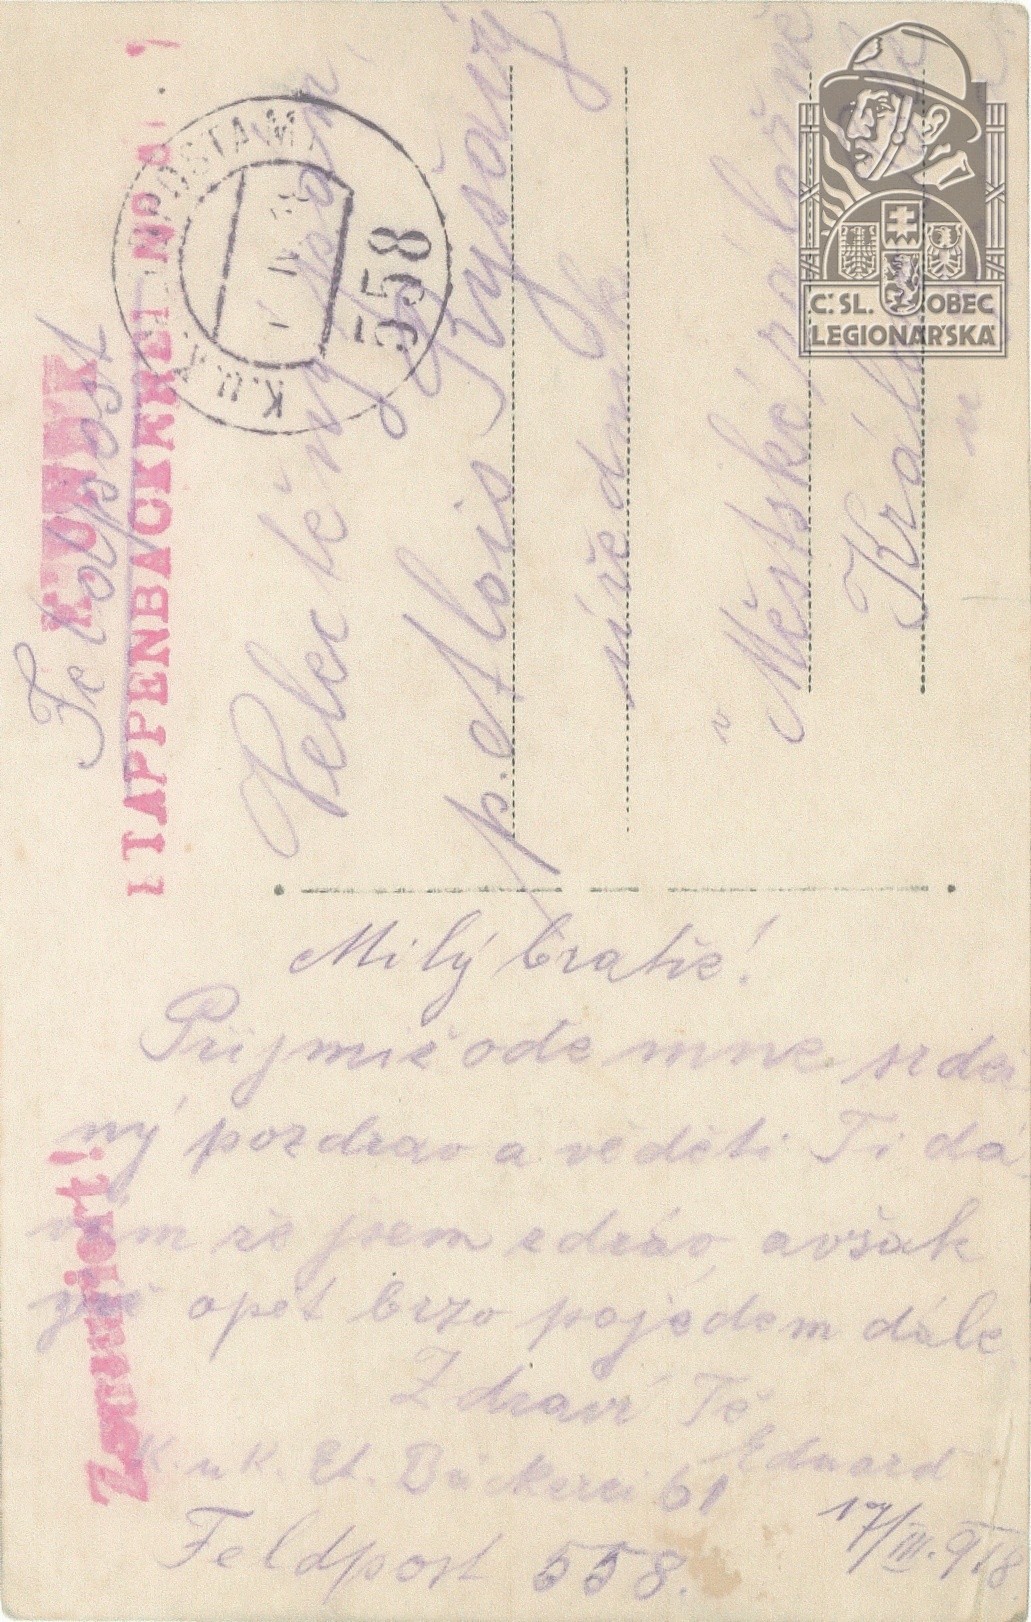 Feldpost
K.U.K.
ETAPPENBACKEREI No
K.u.K. POSTAMT
558
Velectěný pán
p. Alois Tryšavý
úředník
v Městské
Král
C.SL. OBEC
LEGIONÁŘSKÁ
Milý bratře!
Přijmiž ode mne srdeč
ný pozdrav a věděti Ti dá
vám že jsem zdráv, avšak
již opět brzo pojedem dále
Zdraví Tě
Eduard
K. u K. Et. Bäckerei 61
Feldpost 558.
17/III. 918
Zensuriert!